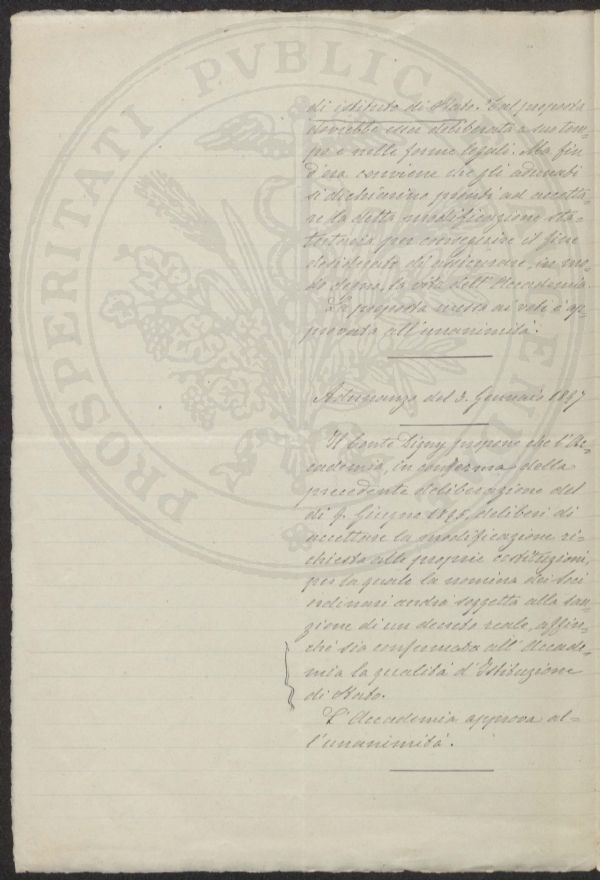 PROSPERITATI PVBLICAE
di istituto di Stato. Tal proposta
dovrebbe esser deliberata a suo tem-
po e nelle forme legali. Ma fin
d'ora conviene che gli adunati
si dichiarino pronti ad accetta-
re la detta modificazione sta-
tutaria per conseguire il fine
desiderato di assicurare, in mo-
do degno, la vita dell'Accademia.
La proposta messa ai voti è ap-
provata all'unanimità.
Adunanza del 3. Gennaio 1897
Il Conte Digny propone che l'Ac-
cademia, in conferma della
precedente deliberazione del
dì 9. Giugno 1895, deliberi di
accettare la modificazione ri-
chiesta alle proprie costituzioni,
per la quale la nomina dei Soci
ordinari andrà soggetta alla san-
zione di un decreto reale, affin-
chè sia confermata all'Accade-
mia la qualità d'Istituzione
di Stato.
L'Accademia approva al-
l'unanimità.